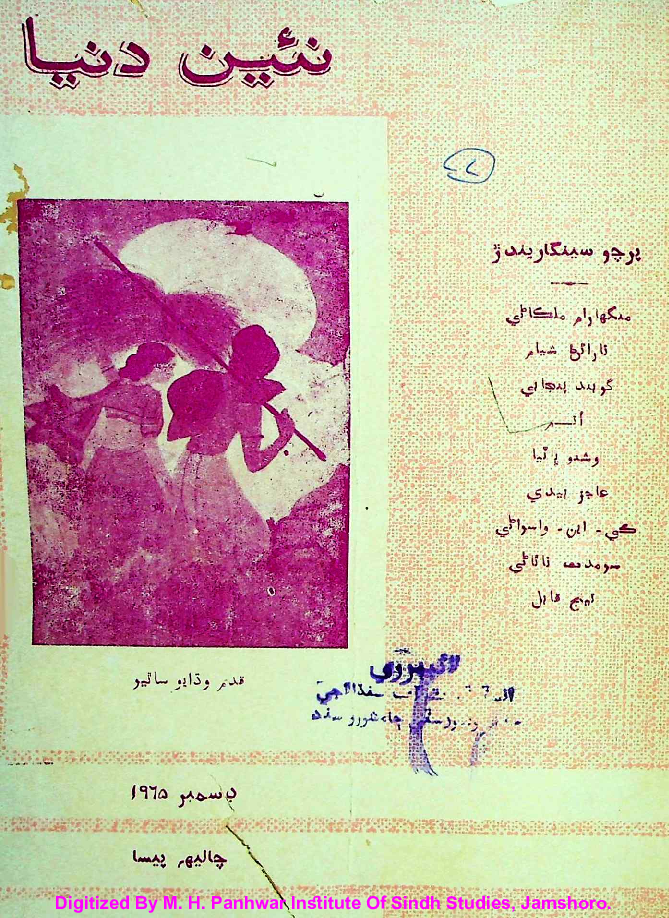 نئين دنيا
پرچو سينگاريندڙ
منگهارام ملڪاڻي
نارائڻ شيام
گوبند پنجابي
اُتم
وشنو ڀاٽيا
عاجز ايدي
ڪي۔ اين۔ واسواڻي
تيج قابل
قدم وڌايو ساٿيو
لائبريري
ڄامشورو سنڌ
ڊسمبر ١٩٦٥
چاليهه پيسا
Digitized By M. H. Panhwar Institute Of Sindh Studies, Jamshoro.